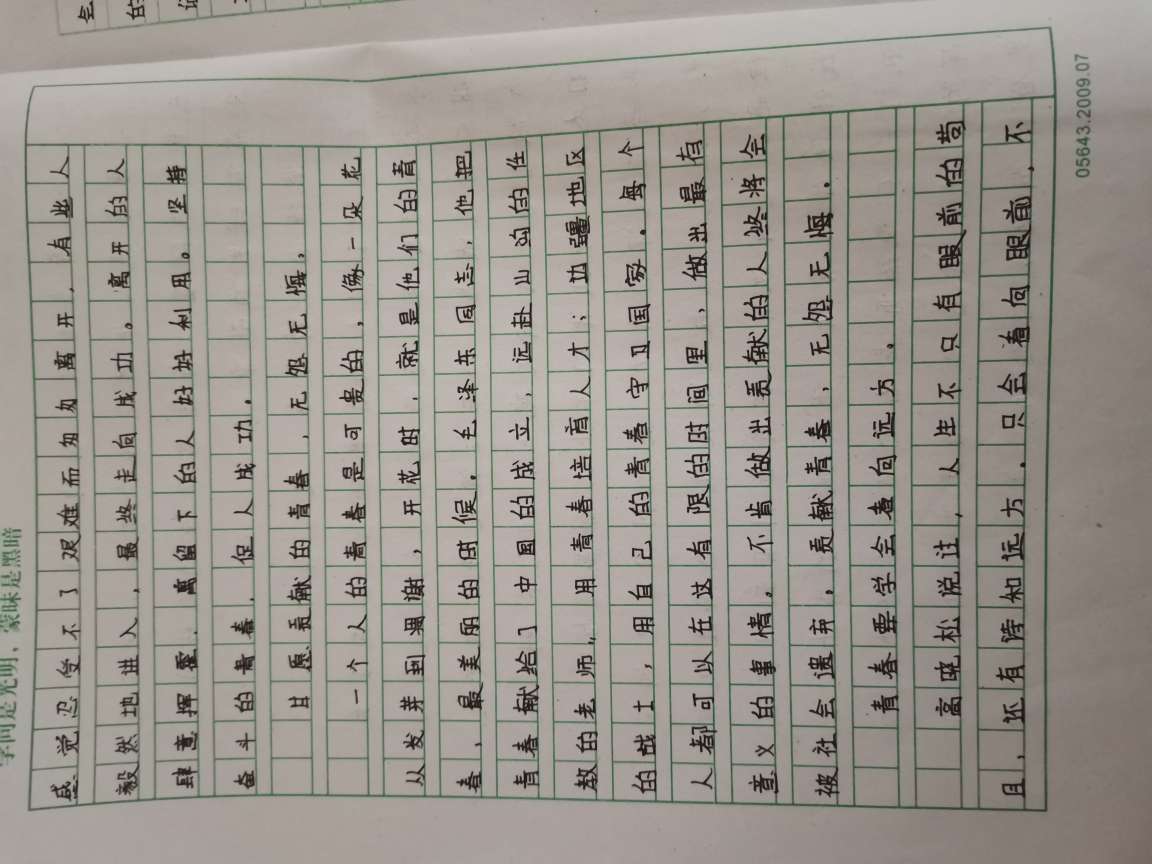 学问是光明，蒙昧是黑暗
感觉忍受不了艰难而匆匆离开，有些人
毅然地进入，最终走向成功。离开的人
肆意挥霍，离留下的人好好利用。坚持
奋斗的青春，促人成功。
甘愿贡献的青春，无怨无悔。
一个人的青春是可贵的，像一朵花
从发芽到凋谢，开花时，就是他们的青
春，最美丽的时候。毛泽东同志，他把
青春献给了中国的成立，远赴山沟的任
教的老师，用青春培育人才；边疆地区
的战士，用自己的青春守卫国家。每个
人都可以在这有限的时间里，做出最有
意义的事情。不肯做出贡献的人终将会
被社会遗弃。贡献青春，无怨无悔。
青春要学会看向远方。
高晓松说过，人生不只有眼前的苟
且，还有诗和远方。只会看向眼前，不
05643.2009.07